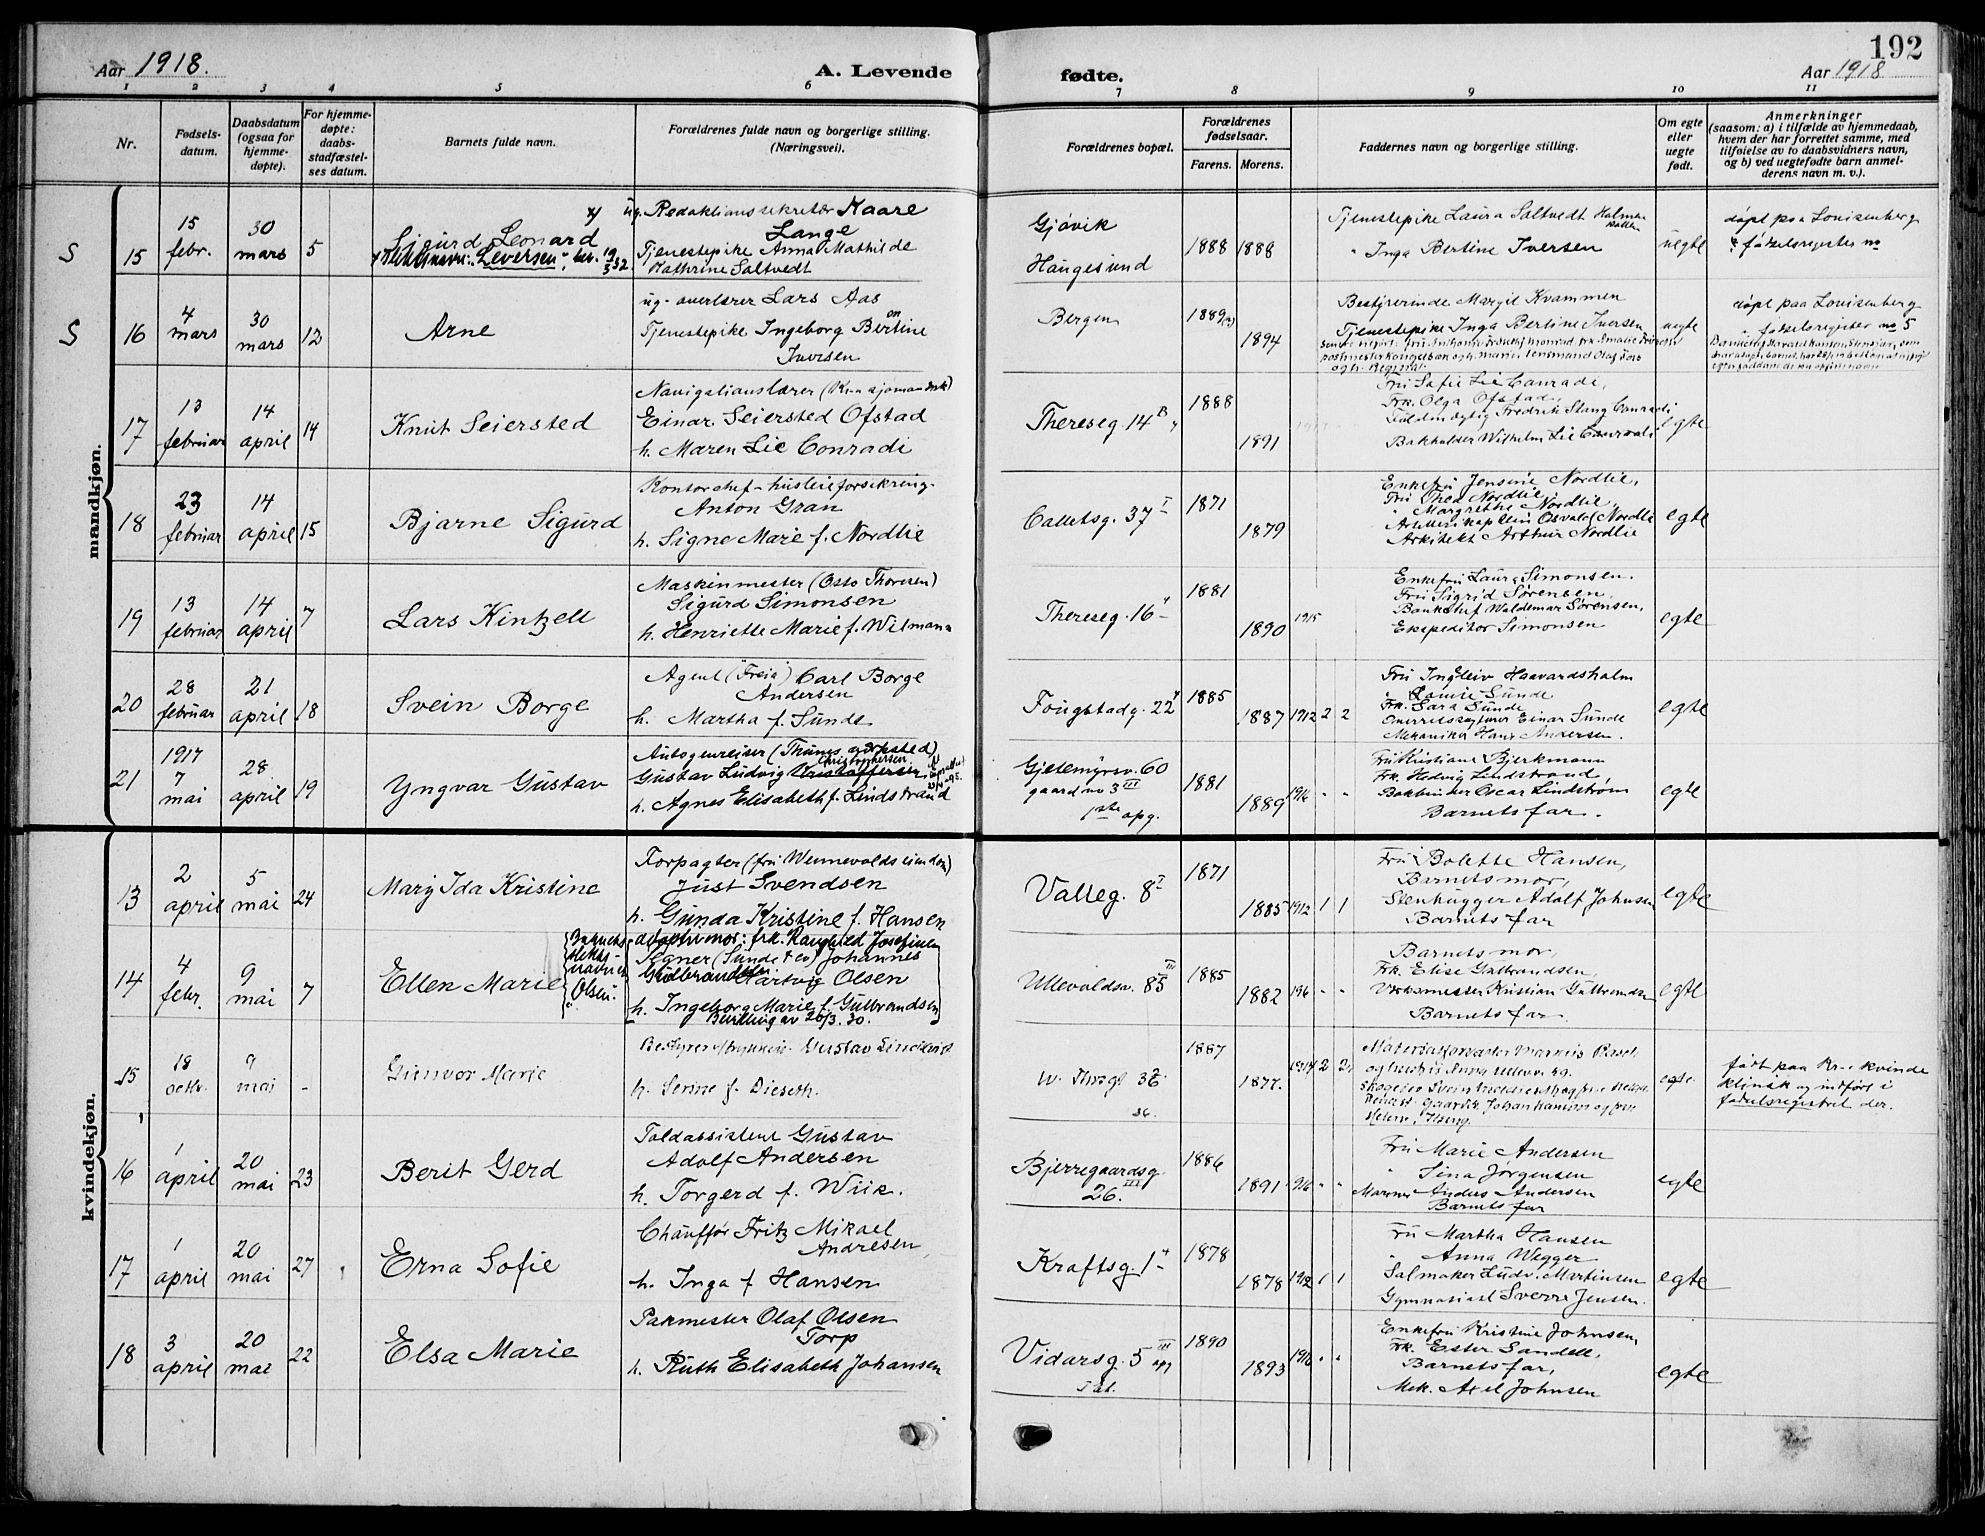 192
Aar 1918. A. Levende fødte. Aar 1918
1 2 3 4 5 6 7 8 9 10 11
Nr.
Fødsels-
datum.
Daabsdatum
(ogsaa for
hjemme-
døpte).
For hjemme-
døpte:
daabs-
stadfæstel-
ses datum.
Barnets fulde navn.
Forældrenes fulde navn og borgerlige stilling.
(Næringsvei).
Forældrenes bopæl.
Forældrenes
fødselsaar.
Farens. Morens.
Faddernes navn og borgerlige stilling.
Om egte
eller
uegte
født.
Anmerkninger
(saasom: a) i tilfælde av hjemmedaab,
hvem der har forrettet samme, med
tilføielse av to daabsvidners navn,
og b) ved uegtefødte barn anmel-
derens navn m. v.).
mandkjøn.
S 15
15 febr.
30 mars
5
Sigurd Leonard
Leversen
ug. Redaktionssekretær Kaare
Lange
Tjenestepike Anna Mathilde
Kathrine Saltvedt
Gjøvik
Haugesund
1888 1888
Tjenestepike Laura Saltvedt
" Inga Bertine Iversen
uegte
døpt paa Louisenberg
fødselsregister no
S 16
4 mars
30 mars
12
Arne
ug. overlærer Lars Aas
Tjenestepike Ingeborg Bertine
Iversen
Bergen
1889
1894
Bestyrerinde Margit Kvammen
Tjenestepike Inga Bertine Iversen
uegte
døpt paa Louisenberg
fødselsregister no 5
17
13 februar
14 april
14
Knut Seiersted
Navigationslærer
Einar Seiersted Ofstad
h. Maren Lie Conradi
Thereseg. 14 B
1888
1891
Fru Sofie Lie Conradi,
Frk. Olga Ofstad,
Fredrik Stang Conradi
Bokholder Wilhelm Lie Conradi
egte
18
23 februar
14 april
15
Bjarne Sigurd
Kontorchef - husleieforsikring-
Anton Gran
h. Signe Marie f. Nordlie
Colletsg. 37 I
1871
1879
Enkefru Jensine Nordlie,
Fru Thea Nordlie,
" Margrethe Nordlie,
Artillerikaptein Osvald Nordlie
Arkitekt Arthur Nordlie
egte
19
13 februar
14 april
7
Lars Kintzell
Maskinmester (Otto Thoresen)
Sigurd Simonsen
h. Henriette Marie f. Wilmann
Thereseg. 16
1881
1890
1915
Enkefru Laura Simonsen.
Fru Sigrid Sørensen,
Bankchef Waldemar Sørensen,
Ekspeditør Simonsen
egte
20
28 februar
21 april
18
Svein Borge
Agent (Freia) Carl Borge
Andersen
h. Martha f. Sunde
Fougstadg. 22
1885
1887 1912 2 2
Fru Ingleiv Haavardsholm
" Louise Sunde
Frk. Sara Sunde
Einar Sunde
Mekaniker Hans Andersen.
egte
21
1917
7 mai
28 april
19
Yngvar Gustav
Autogensveiser (Thunes verksted)
Christophersen
Gustav Ludvig Kristoffersen
h. Agnes Elisabeth f. Lindstrand
Gjetemyrsv. 60
gaard no 3 III
1ste opg.
1881
1889 1916 " "
Fru Kristiane Bjerkmann
Frk. Hedvig Lindstrand,
Bokbinder Oscar Lindstrøm
Barnets far.
egte
kvindekjøn.
13
2 april
5 mai
24
Mary Ida Kristine
Forpagter
Just Svendsen
h. Gunda Kristine f. Hansen
Valleg. 8 I
1871
1885 1912 1 1
Fru Bolette Hansen,
Barnets mor,
Stenhugger Adolf Johnsen
Barnets far
egte
14
4 febr.
9 mai
7
Ellen Marie
Barnets
slegts-
navn er
"Olsen".
adoptivmor: frk. Ranghild Josefine
Gudbrandsen
Tegner (Sunde & co) Johannes
Hartvig Olsen
h. Ingeborg Marie f. Gulbrandsen
Bevilling av 20/3. 30.
Ullevoldsv. 85 III
1885
1882 " "
Barnets mor,
Frk. Elise Gulbrandsen,
Verksmester Kristian Gulbrandsen
Barnets far
egte
15
18
9 mai
-
Gunvor Marie
Gustav Lindkvist
h. Serine f. Dieseth.
1887
1877. 1914 2 2
egte
født paa Kr.a kvinde
klinik og indført i
fødselsregistret der.
16
1 april
20 mai
23
Berit Gerd
Toldassistent Gustav
Adolf Andersen
h. Torgerd f. Wiik.
Bjerregaardsg.
26. III
1886
1891 1916 " "
Fru Marie Andersen
" Sina Jørgensen
Anders Andersen
Barnets far
egte
17
1 april
20 mai
27
Erna Sofie
Chauffør Fritz Mikael
Andresen,
h. Inga f. Hansen
Kraftsg. 1
1878
1878 1912 1 1
Fru Martha Hansen
" Anna Wegger
Salmaker Ludv. Martinsen
Gymnasiast Sverre Jensen.
egte
18
3 april
20 mai
22
Elsa Marie
Pakmester Olaf Olsen
Torp
h. Ruth Elisabeth Johansen
Vidarsg. 5 III
1890
1893 1916 " "
Enkefru Kristine Johnsen,
Frk. Ester Sandell,
Barnets far,
Mek. Axel Johnsen
egte